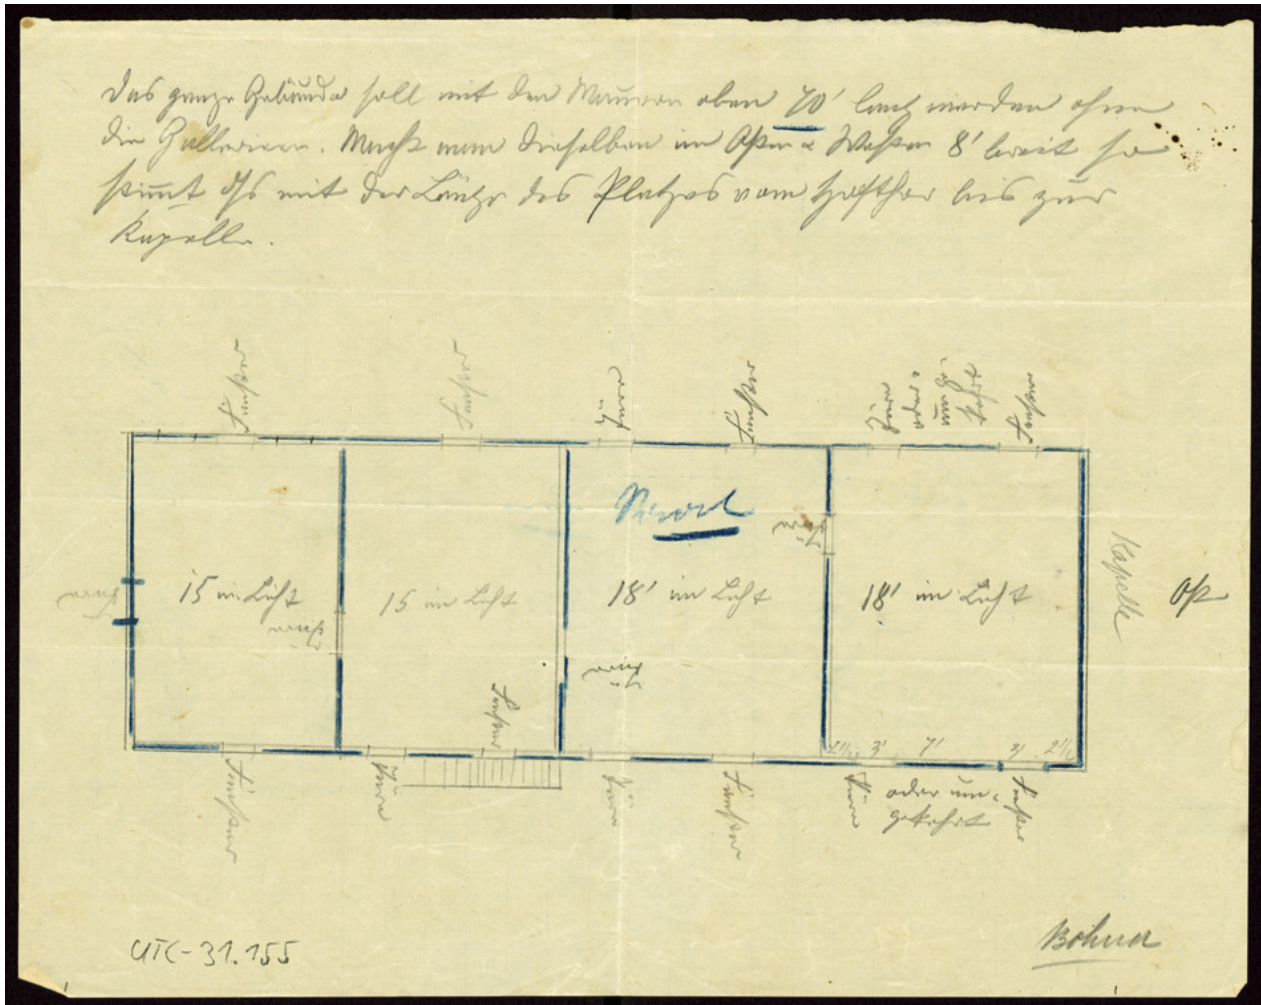 Das ganze Gebäude soll mit den Mauern oben 70' lang werden ohne
die Gallerieen. Macht man dieselben im Osten & Westen 8' breit so
stimmt es mit der Länge des Platzes vom Hofthor bis zur
Kapelle.
Fenster
Fenster
Türe
Fenster
Türe
oder
umge-
kehrt
Fenster
Türe
15 im Licht
Türe
15 im Licht
18' im Licht
Türe
18' im Licht
Kapelle
Ost
Türe
Fenster
2 1/2 3' 7' 3' 2 1/2
Fenster
Türe
Türe
Fenster
Türe
oder um-
gekehrt
Fenster
UTC-31.155
Bohner